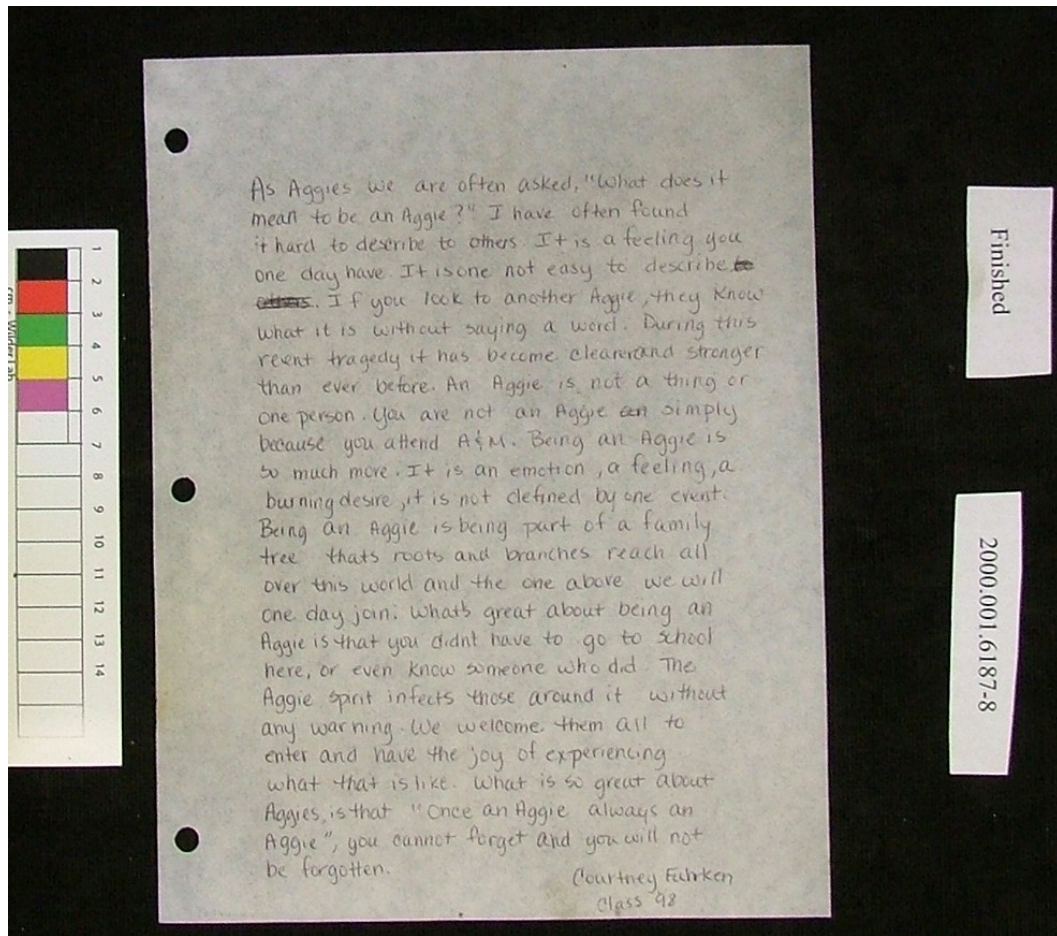 As Aggies we are often asked, "What does it
mean to be an Aggie?" I have often found
it hard to describe to others. It is a feeling you
one day have. It is one not easy to describe to
others. If you look to another Aggie, they know
what it is without saying a word. During this
reent tragedy it has become clearer and stronger
than ever before. An Aggie is not a thing or
one person. You are not an Aggie simply
because you attend A&M. Being an Aggie is
so much more. It is an emotion, a feeling, a
burning desire, it is not defined by one event.
Being an Aggie is being part of a family
tree thats roots and branches reach all
over this world and the one above we will
one day join. What's great about being an
Aggie is that you didnt have to go to school
here, or even know someone who did. The
Aggie spirit infects those around it without
any warning. We welcome them all to
enter and have the joy of experiencing
what that is like. What is so great about
Aggies, is that "Once an Aggie always an
Aggie", you cannot forget and you will not
be forgotten.
Courtney Fuhrken
Class '98
Finished
2000.001.6187-8
1
2
3
4
5
6
7
8
9
10
11
12
13
14